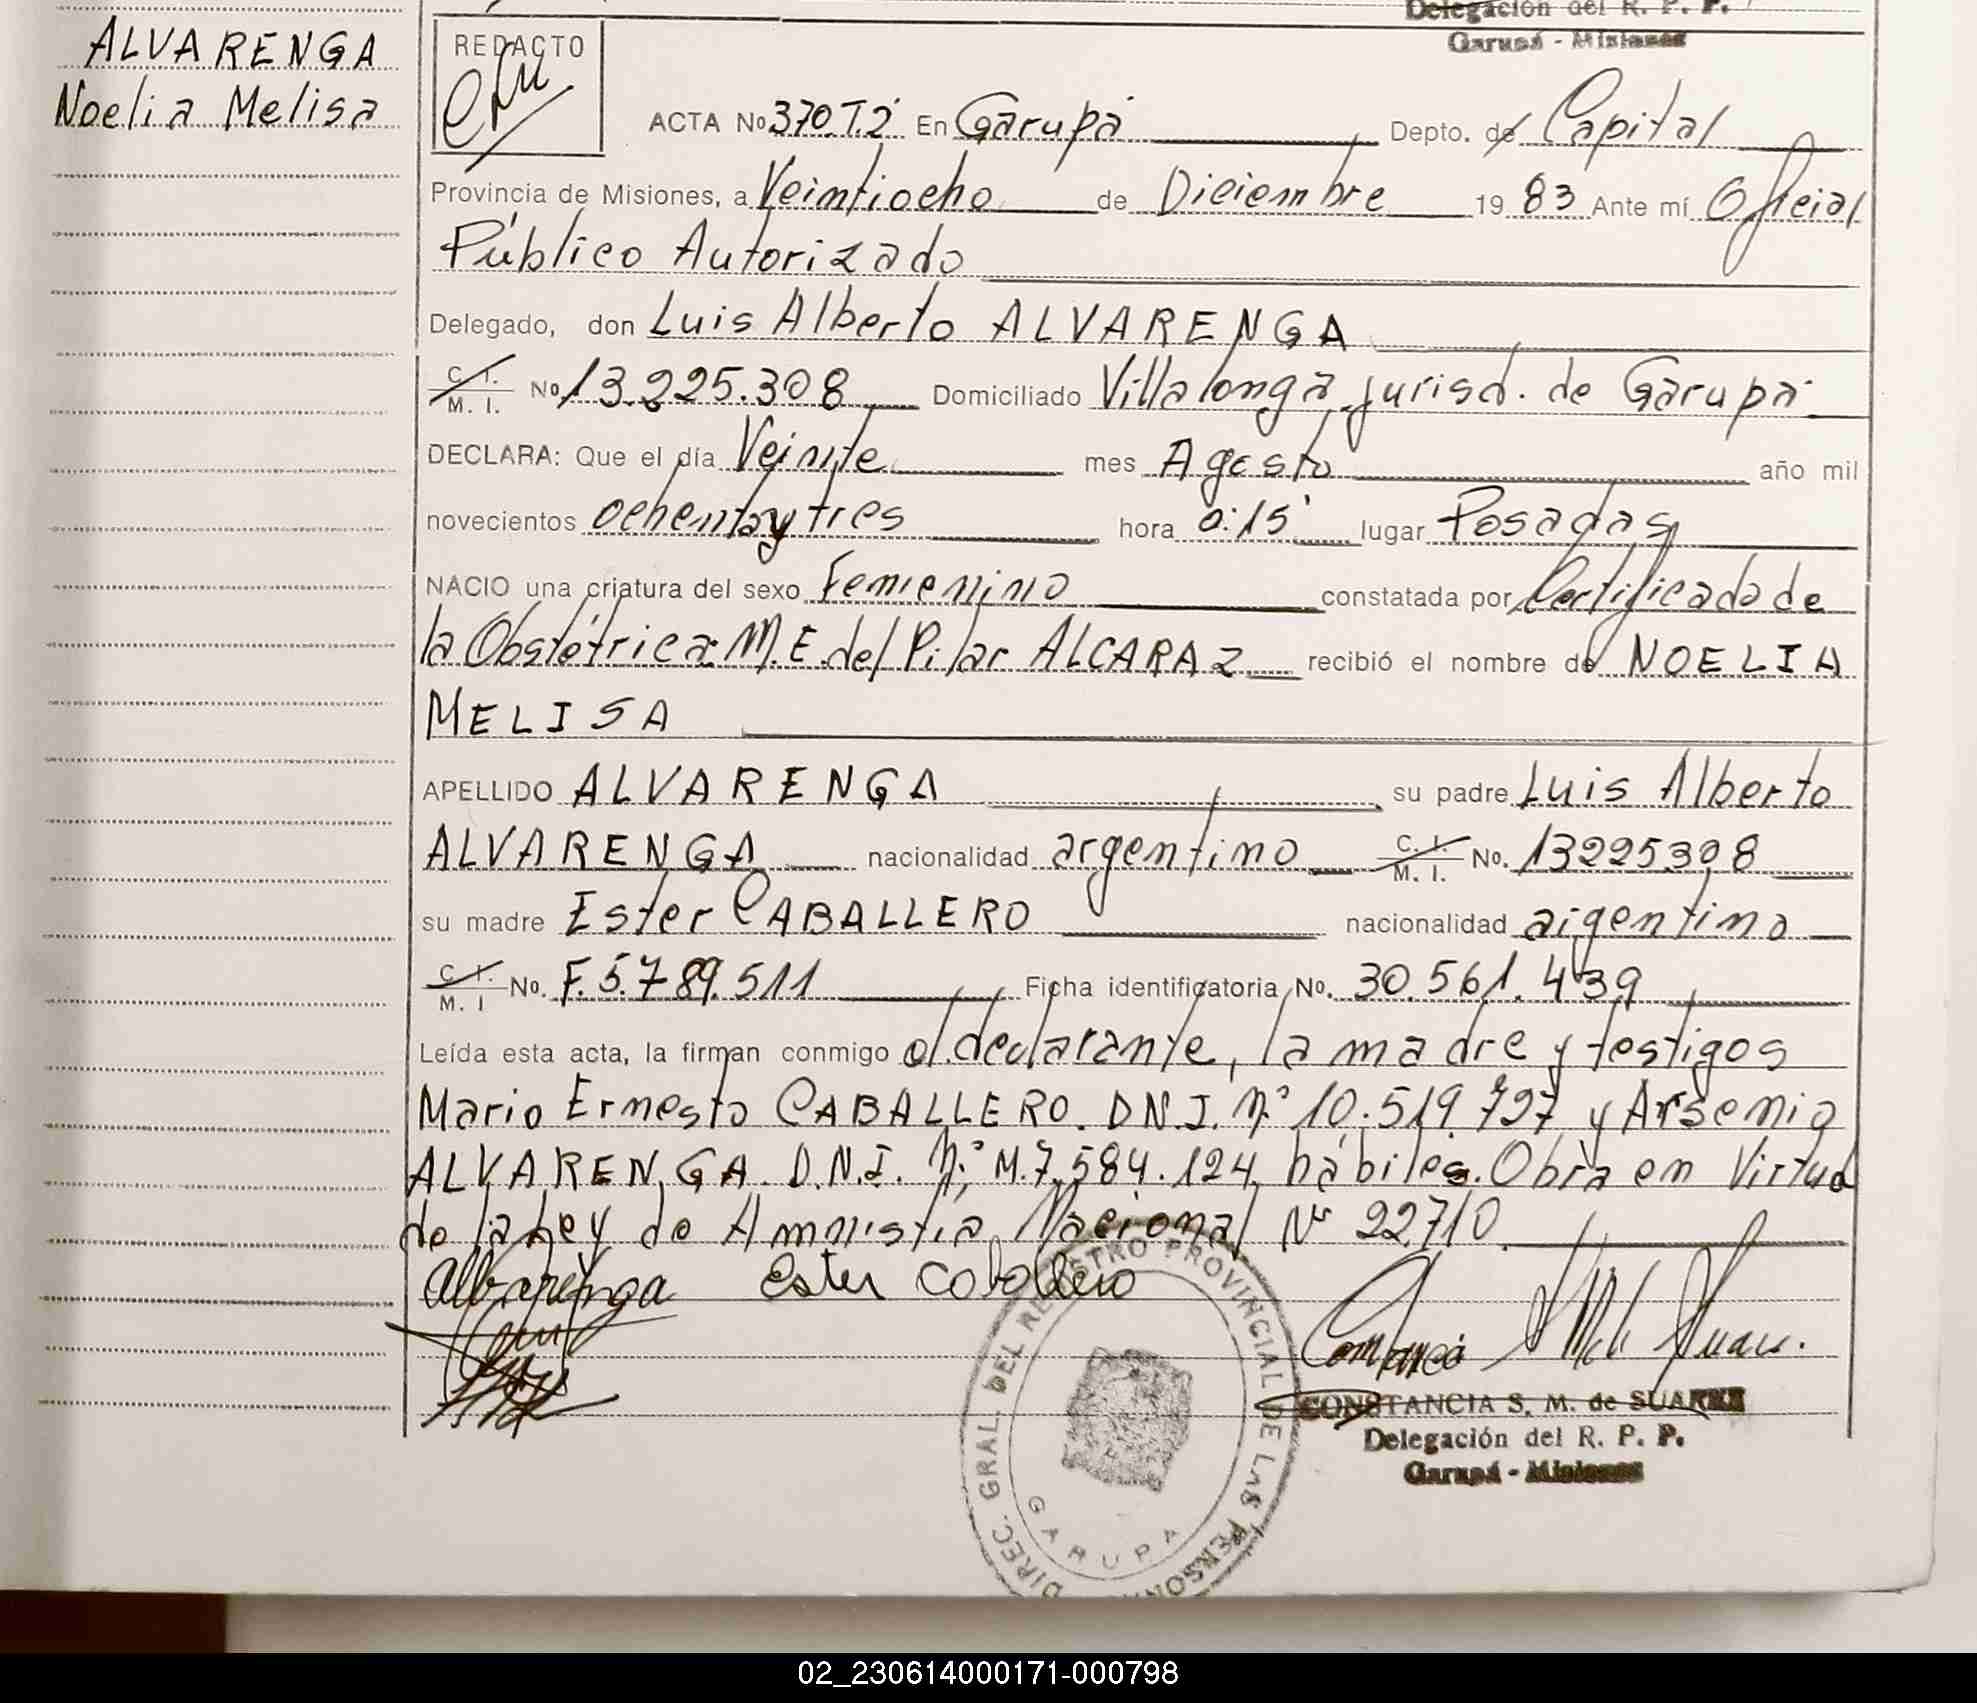 Delegación del R. P. P.
Garupá - Misiones
ALVARENGA
Noelia Melisa
REDACTO
ACTA No 370 T.2 En Garupá Depto. de Capital
Provincia de Misiones, a Veintiocho de Diciembre 19 83 Ante mí Oficial
Público Autorizado
Delegado, don Luis Alberto ALVARENGA
C. I. M. I. No. 13.225.308 Domiciliado Villalonga jurisd. de Garupá
DECLARA: Que el día Veinte mes Agosto año mil
novecientos ochenta y tres hora 0:15' lugar Posadas
NACIO una criatura del sexo Femenino constatada por Certificado de
la Obstétrica M.E. del Pilar ALCARAZ recibió el nombre de NOELIA
MELISA
APELLIDO ALVARENGA su padre Luis Alberto
ALVARENGA nacionalidad argentino C. I. M. I. No. 13225308
su madre Ester CABALLERO nacionalidad argentina
C. I. M. I No. F. 5.789.511 Ficha identificatoria No. 30.561.439
Leída esta acta, la firman conmigo el declarante, la madre y testigos
Mario Ernesto CABALLERO. D.N.I. Nº 10.519.797 y Arsenio
ALVARENGA. D.N.I. Nº M. 7.584.124, hábiles. Obra en Virtud
de la Ley de Amnistía Nacional Nº 22.710.
Albarenga Ester Caballero
CONSTANCIA S. M. de SUAREZ
Delegación del R. P. P.
Garupá - Misiones
DIREC. GRAL. DEL REGISTRO PROVINCIAL DE LAS PERSONAS
GARUPA
02_230614000171-000798